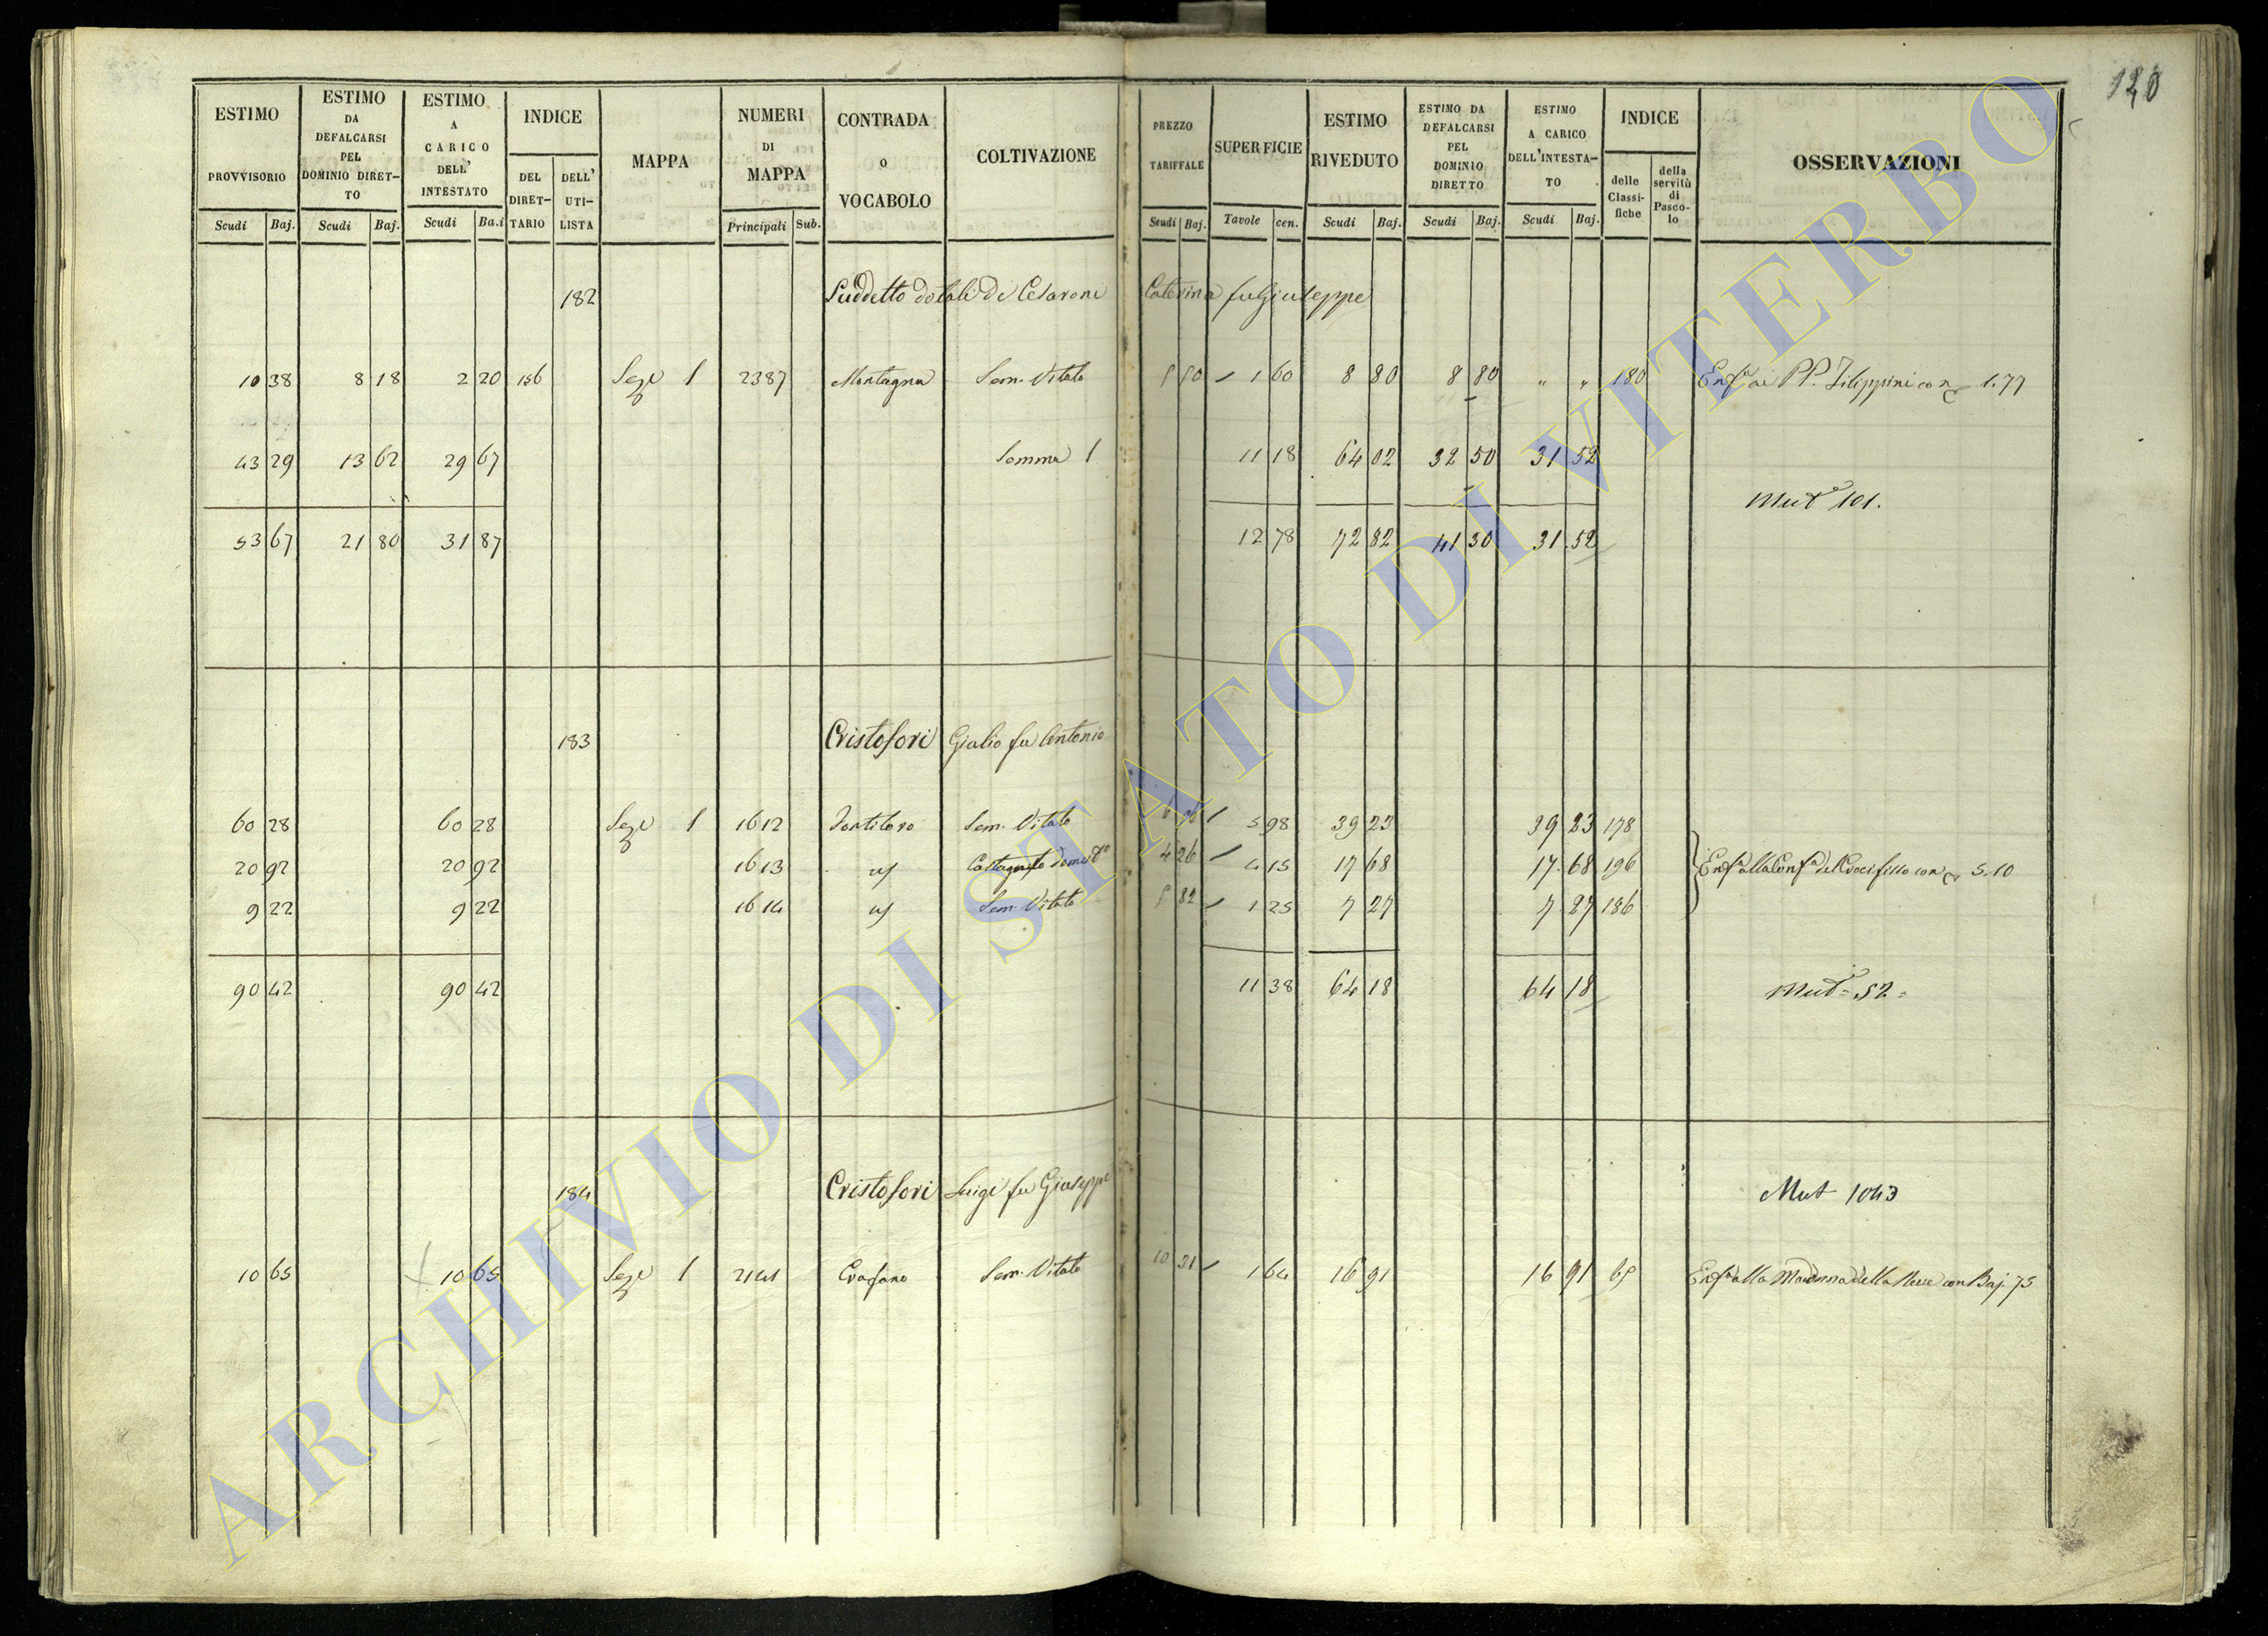 120
ESTIMO PROVVISORIO Scudi Baj. ESTIMO DA DEFALCARSI PEL DOMINIO DIRETTO Scudi Baj. ESTIMO A CARICO DELL' INTESTATO Scudi Ba.i INDICE DEL DIRETTARIO DELL' UTILISTA MAPPA NUMERI DI MAPPA Principali Sub. CONTRADA o VOCABOLO COLTIVAZIONE PREZZO TARIFFALE Scudi Baj. SUPERFICIE Tavole cen. ESTIMO RIVEDUTO Scudi Baj. ESTIMO DA DEFALCARSI PEL DOMINIO DIRETTO Scudi Baj. ESTIMO A CARICO DELL'INTESTATO Scudi Baj. INDICE delle Classifiche della servitù di Pascolo OSSERVAZIONI
182 Suddetto dotali di Cesaroni Caterina fu Giuseppe
10 38 8 18 2 20 156 Sez.e 1 2387 Montagna Sem. Vitato 5 50 1 60 8 80 8 80 " " 180 Enf.a ai PP. Filippini con 1.77
43 29 13 62 29 67 Somma 1 11 18 64 02 32 50 31 52
Mut.e 101.
53 67 21 80 31 87 12 78 72 82 41 30 31 52
183 Cristofori Giulio fu Antonio
60 28 60 28 Sez.e 1 1612 Sem. Vitato 5 98 39 23 39 23 178
20 92 20 92 1613 Castagneto Dom.o 4 26 4 15 17 68 17 68 196 Enf.a alla Conf.a del Crocifisso con 5.10
9 22 9 22 1614 Sem. Vitato 5 82 1 25 7 27 7 27 186
90 42 90 42 11 38 64 18 64 18 Mut.e 52
184 Cristofori Luigi fu Giuseppe Mut 1043
10 65 10 65 Sez.e 1 2141 Crafano Sem. Vitato 10 31 1 64 16 91 16 91 Enf.a alla Madonna della Neve con Baj 75
ARCHIVIO DI STATO DI VITERBO